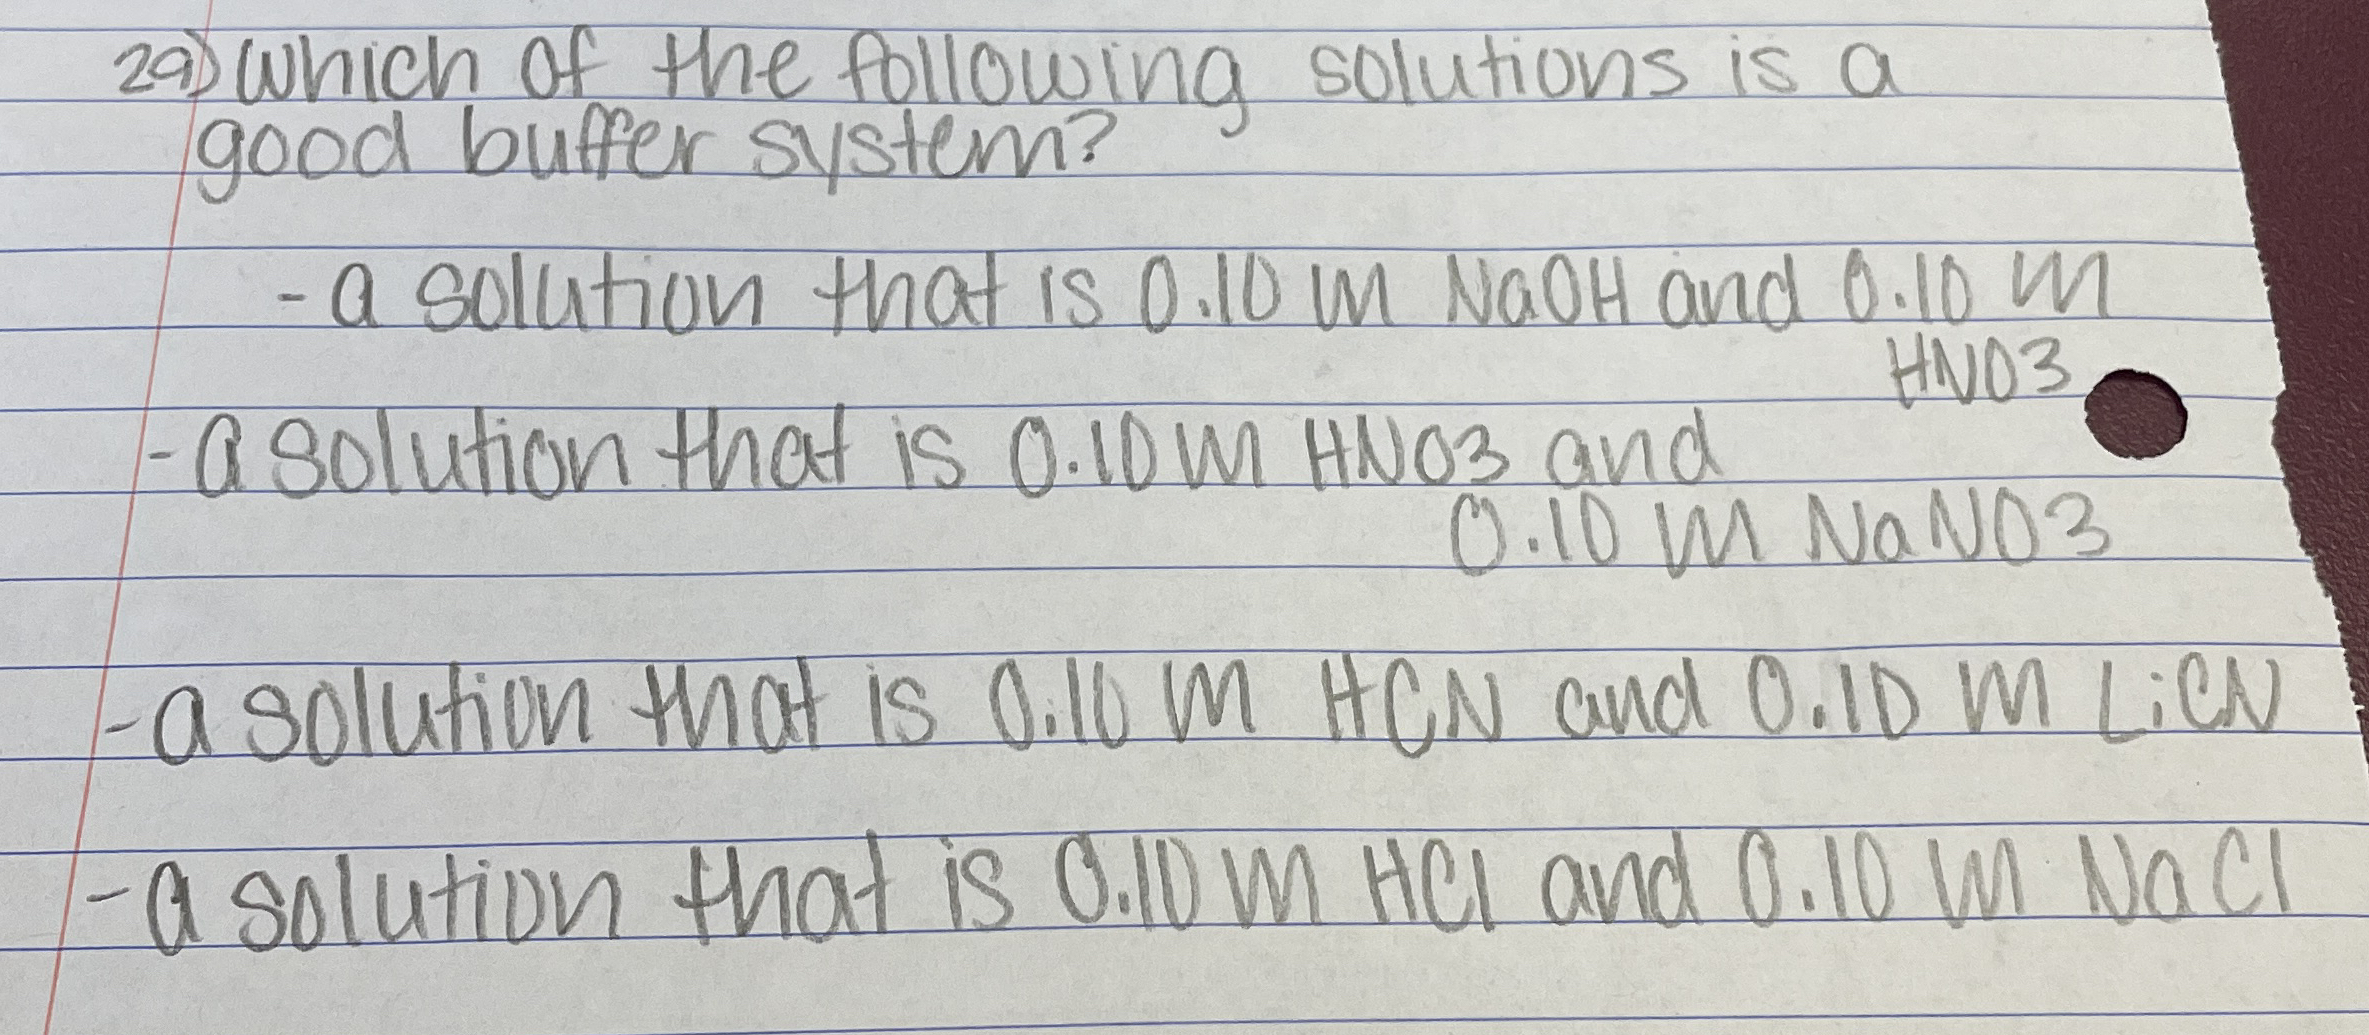 29) which of the following solutions is a
good buffer system?
- a solution that is 0.10 M NaOH and 0.10 M
HNO3
- a solution that is 0.10 M HNO3 and
0.10 M NaNO3
- a solution that is 0.10 M HCN and 0.10 M LiCN
- a solution that is 0.10 M HCl and 0.10 M NaCl